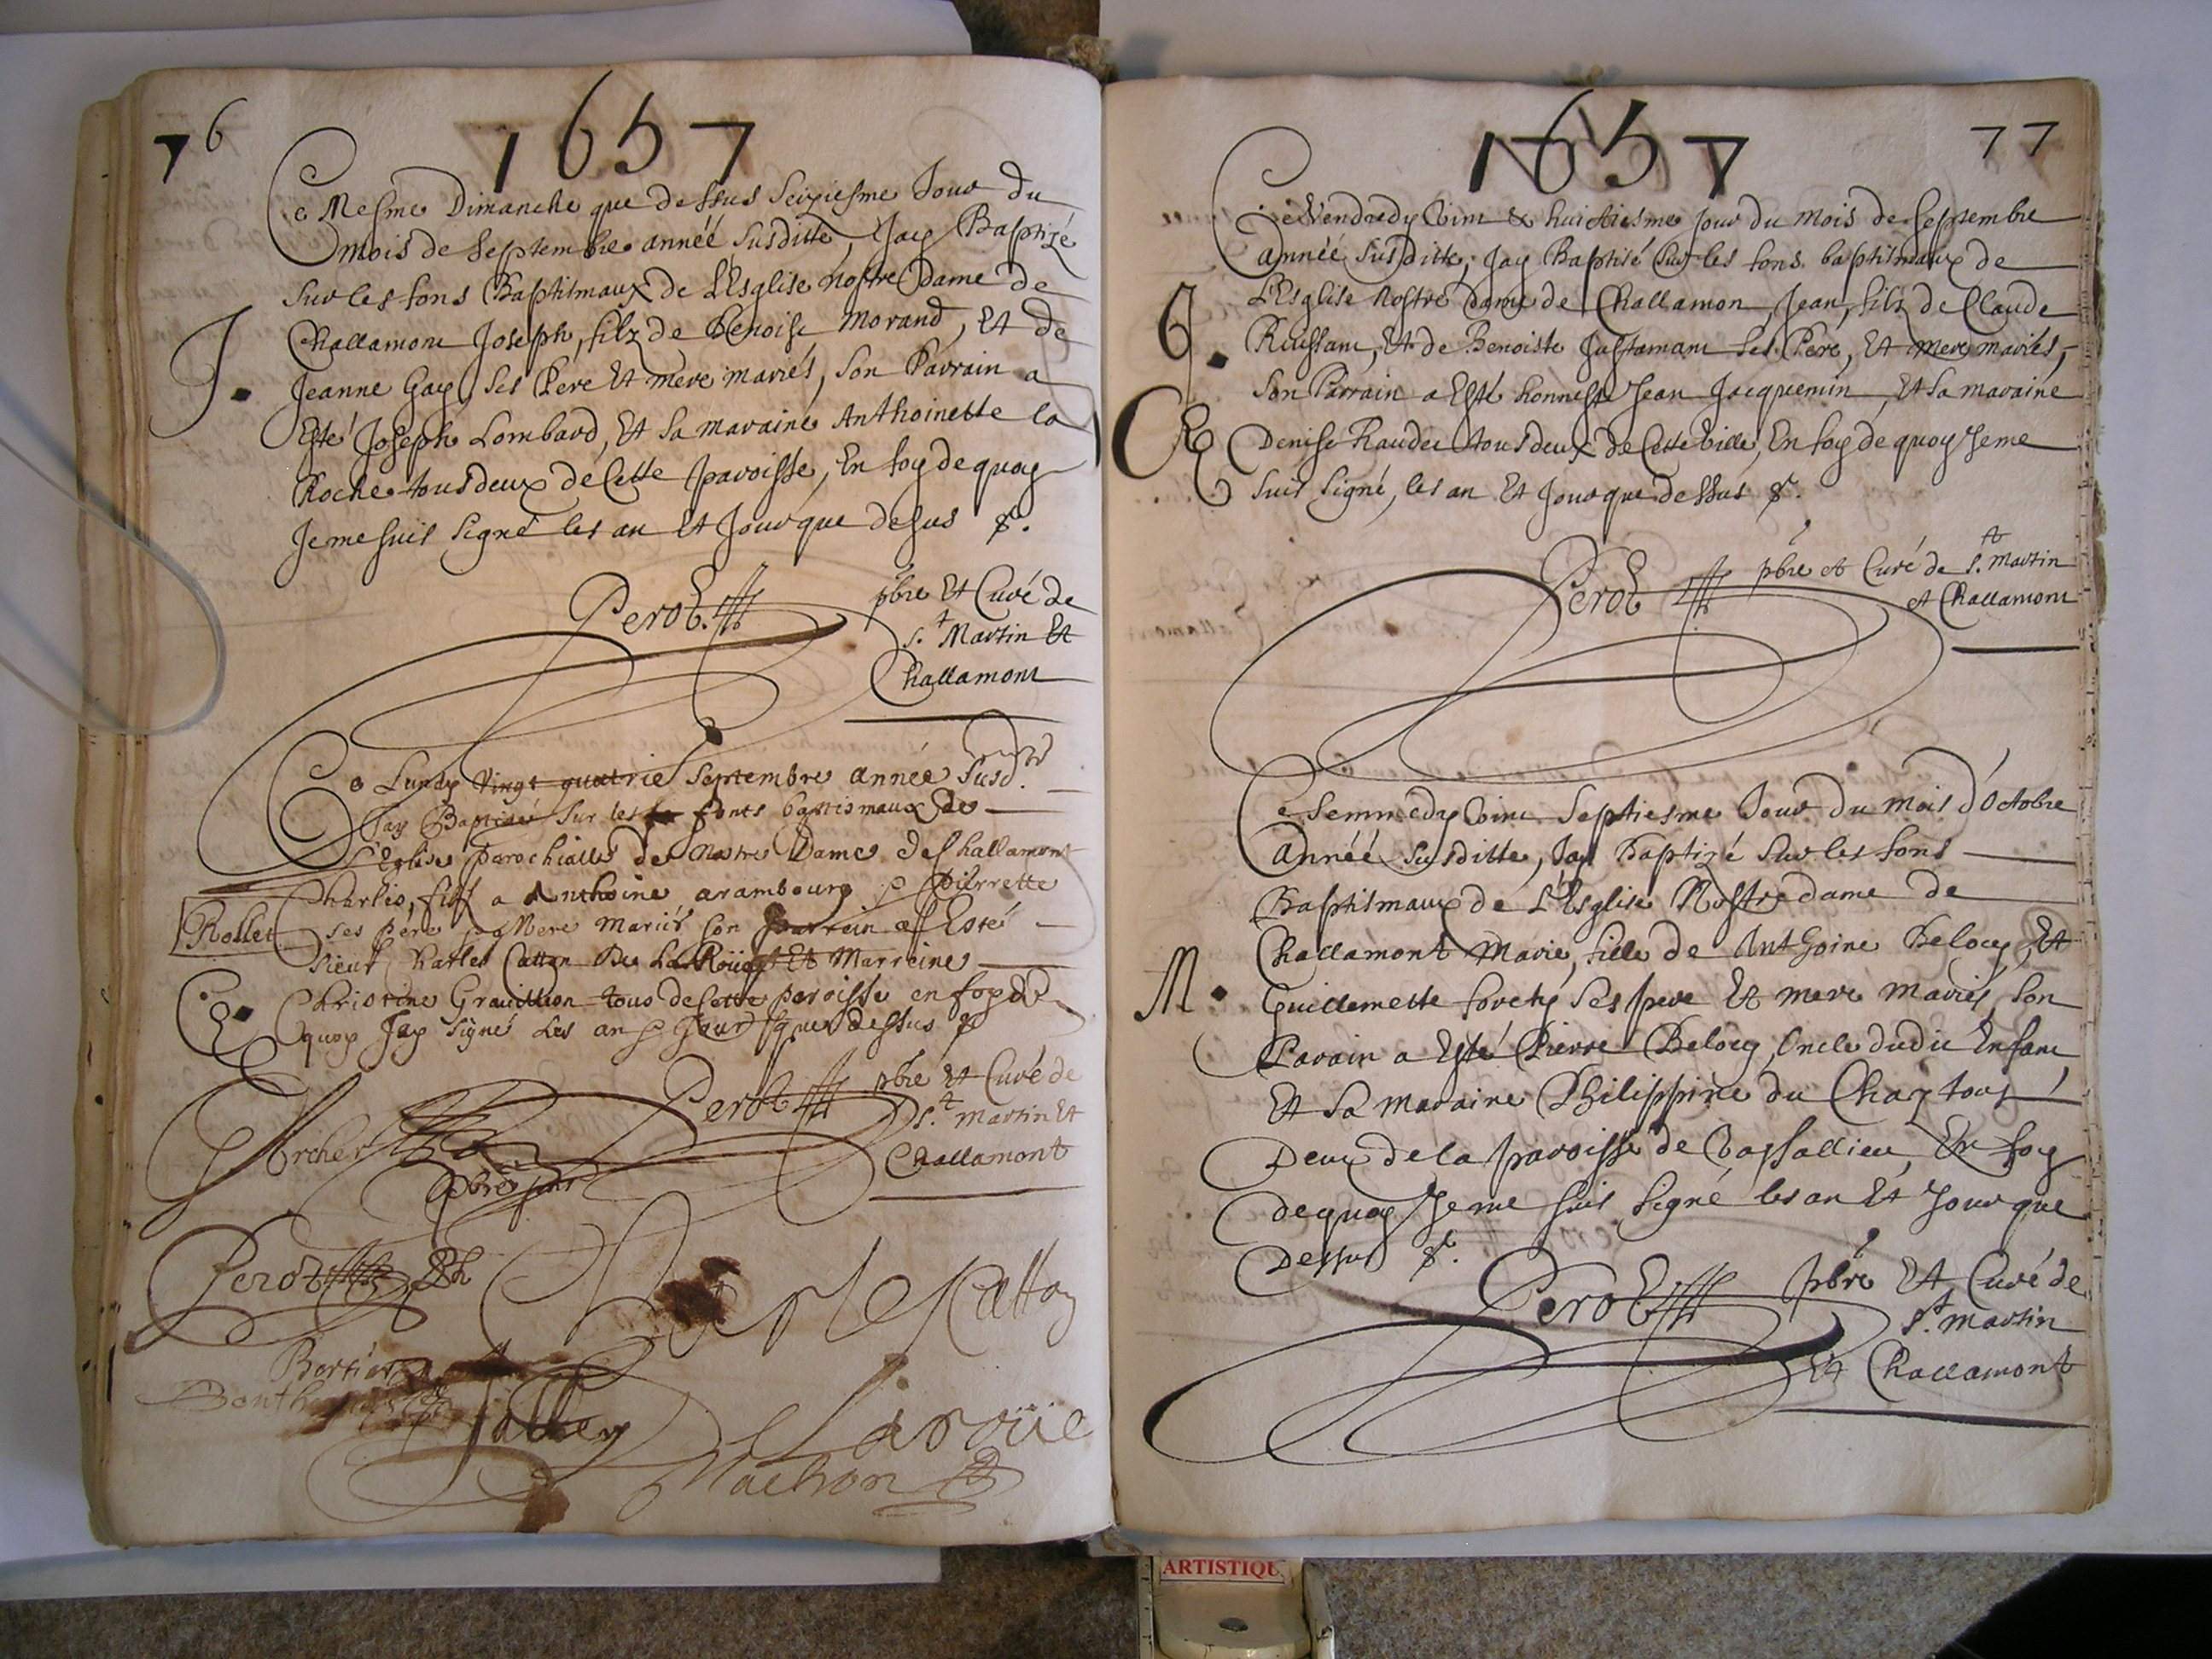 76
1657
Ce Mesme Dimanche que dessus Seiziesme Jour du
mois de Septembre année susditte, Jay Baptizé
sur les fons Baptismaux de L'Esglise nostre Dame de
J.
Challamont Joseph, filz de Benoist Morand, Et de
Jeanne Gay, ses Pere Et mere mariés, son Parrain a
Esté Joseph Lombard, Et sa maraine Anthoinette la
Roche tous deux de Cette paroisse, En foy de quoy
Je me suis signé les an Et Jour que desus &.
Perot pbre Et Curé de
S.t Martin Et
Challamont
Ce Lundy Vingt quatrie Septembre année susd.te
Jay Baptisé sur les fonts baptismaux de
L'Eglise parochialle de Nostre Dame de Challamont
Charles, filz a Anthoine arambourg Pierrette
Rollet ses père mere mariés son parrain Esté
sieur Charles Catton De La Roüe Et Marreine
C.
Christine Grauillion tous de cette paroisse en foy de
quoy Jay signé Les an Jour que dessus
Perot pbre Et Curé de
S.t Martin Et
Challamont
Archer
Perot
Charle Catton
Bertier
Jalley
Laroüe
Machon
1657
77
Ce Vendredy Vint & huictiesme jour du mois de Septembre
année susditte, Jay Baptisé sur les fons baptismaux de
L'Esglise Nostre Dame de Challamon, Jean, filz de Claude
J.
Reussant, Et de Benoiste Justamant ses Pere, Et mere mariés,
son Parrain a Esté honneste Jean Jacquemin, Et sa maraine
R
Denise Raudet tous deux de Cette Ville, En foy de quoy Je me
suis signé, les an Et Jour que dessus &.
Perot pbre et Curé de S.t Martin
et Challamont
Ce Semmedy Vint Septiesme Jour du mois d'Octobre
année susditte, Jay Baptizé sur les fons
Baptismaux de L'Esglise Nostre dame de
Challamont Marie, fille de Anthoine Belocy, Et
M.
Guillemette forety ses pere Et mere mariés, son
Parain a Esté Pierre Belocy, Oncle dudit Enfant,
Et sa maraine Philippine du Chay tous
Deux de la paroisse de Vassallieu, En foy
de quoy Je me suis signé les an Et Jour que
Dessus &.
Perot pbre Et Curé de
S.t Martin
Et Challamont
ARTISTIQU